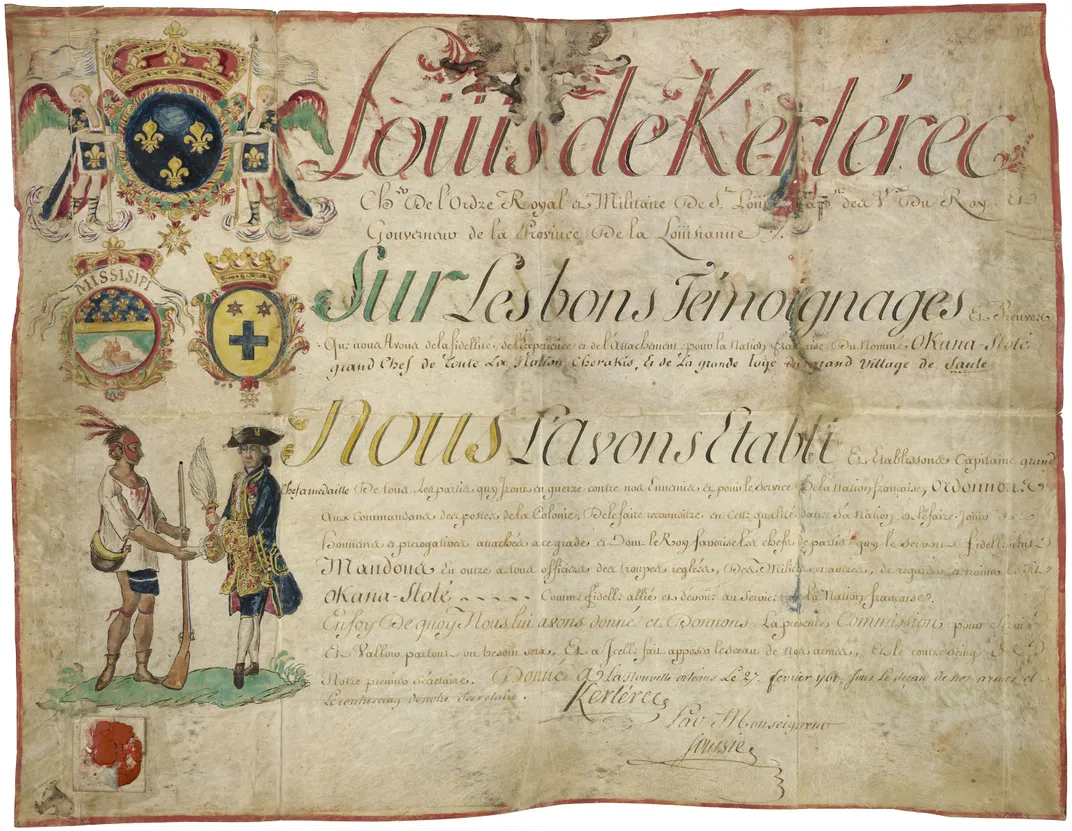 Louis de Kerlérec
Ch.er De l'Ordre Royal et Militaire De S.t Louis, Cap.ne des V.x Du Roy, Et
Gouverneur de la Province De la Loüisianne
MISSISIPI
Sur Les bons Témoignages Et Preuves
Que nous Avons de la fidellité, de l'Expérience et de l'Attachement pour la Nation française, Du Nommé Okana-Stoté
grand Chef de Toute La Nation Cherakis, & de La grande loge du grand Village de Sauté
Nous L'avons Etabli Et Etablissons Capitaine grand
Chef a medaille De tous Les partis quy Iront en guerre contre nos Ennemis et pour le Service De la Nation française, Ordonnons
Aux Commandans des postes de la Colonie, De le faire reconnoitre en Cette qualité dans Sa Nation, et le faire Jouir
honneurs et prérogatives attachés a ce grade et Dont le Roy favorise les chefs de partis quy le Servent fidellement
Mandons En outre a tous officiers des troupes reglées, Des Milices et autres, de regarder et traiter
Okana-Stoté Comme fidelle allié et devoüé au Service de la Nation française.
En foy De quoy Nous lui avons donné et Donnons La présente Commission pour Servir
Et Valloir partout ou besoin sera, Et a Icelle fait apposer le sceau de Nos armes, Et le contreseing de
Notre premier Secretaire. Donné à La Nouvelle orleans Le 27. fevrier 1761. sous le sceau de nos armes et
Le contreseing de notre Secretaire.
Kerlérec
Par Monseigneur